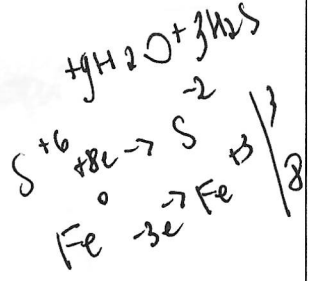 +9H2O+3H2S
S⁺⁶ +8e → S⁻² | 3
Fe⁰ -3e → Fe⁺³ | 8